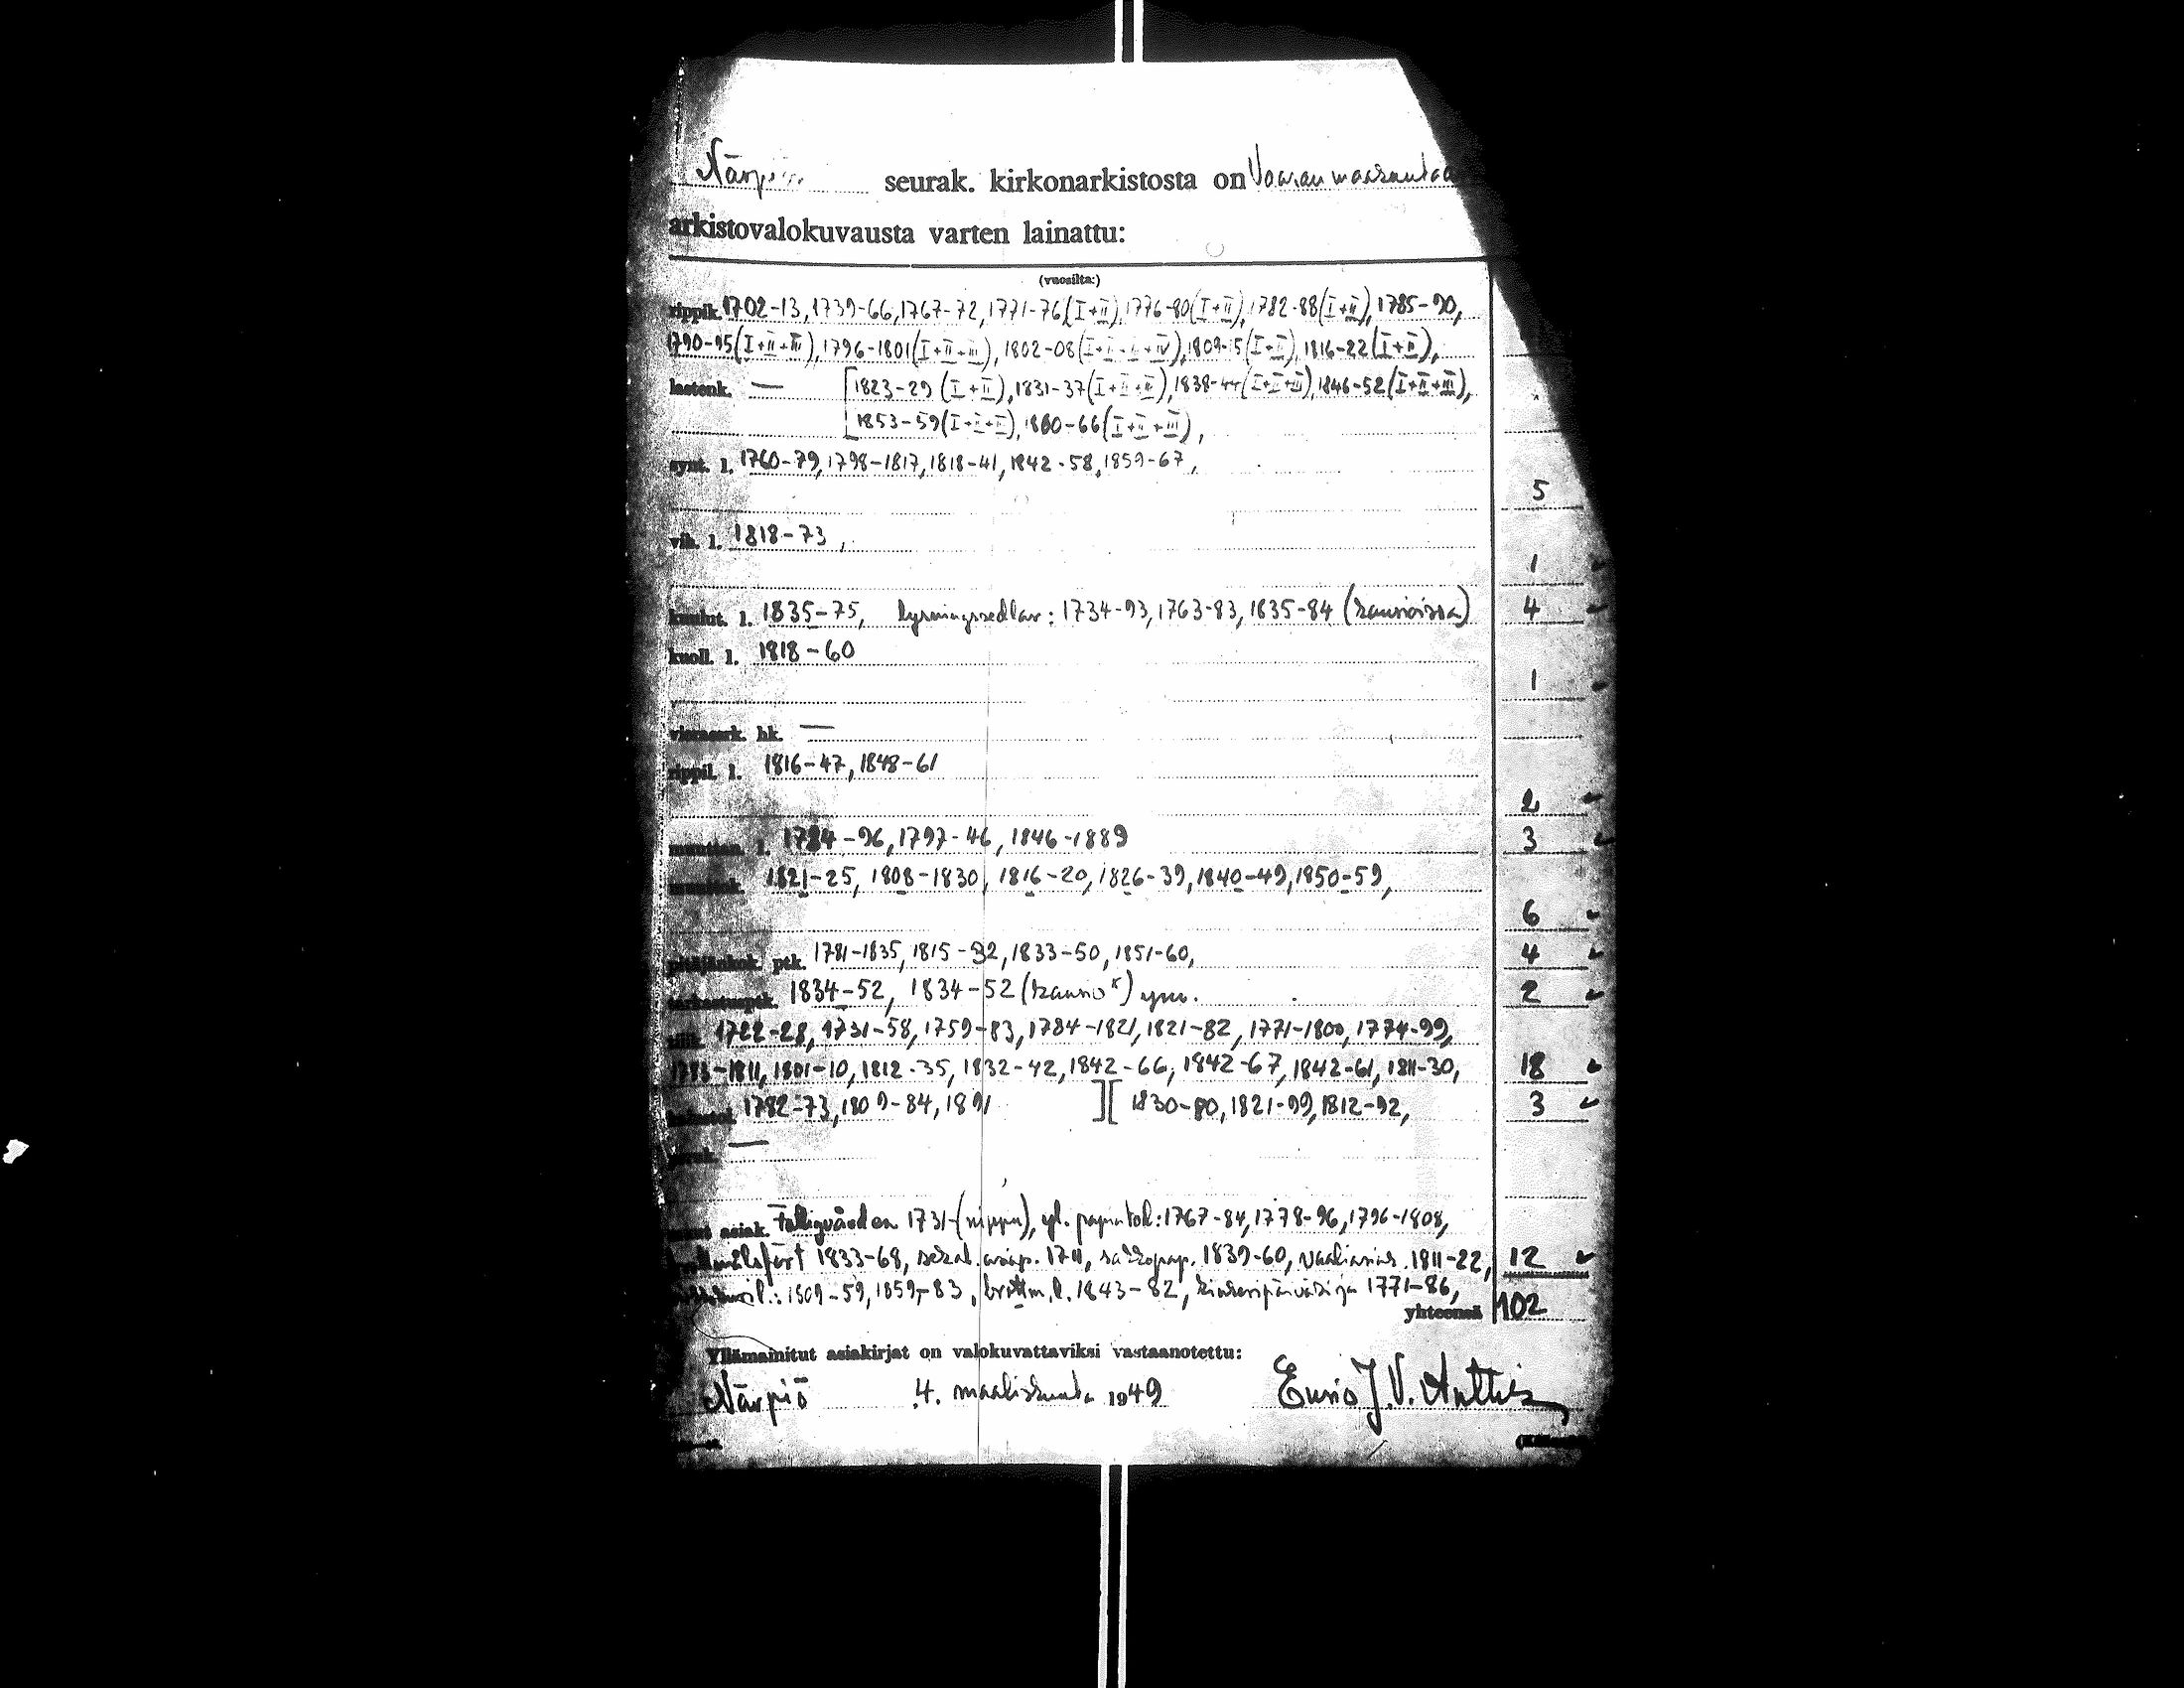 Närpiön seurak. kirkonarkistosta on Vaasan maakunta
arkistovalokuvausta varten lainattu:
(vuosilta:)
rippik. 1702-13, 1739-66, 1767-72, 1771-76 (I+II), 1776-80 (I+II), 1782-88 (I+II), 1785-90,
1790-95 (I+II+III), 1796-1801 (I+II+III), 1802-08 (I+II+III+IV), 1809-15 (I+II), 1816-22 (I+II),
lastenk. — [1823-29 (I+II), 1831-37 (I+II+III), 1838-44 (I+II+III), 1846-52 (I+II+III),
[1853-59 (I+II+III), 1860-66 (I+II+III),
synt. l. 1760-79, 1798-1817, 1818-41, 1842-58, 1859-67,
5
vih. l. 1818-73,
1
kuulut. l. 1835-75, lysningssedlar: 1734-93, 1763-83, 1835-84 (kansioissa) 4
kuoll. l. 1818-60
1
vierasrk. hk. —
rippil. l. 1816-47, 1848-61
2
muuttan. l. 1784-96, 1797-46, 1846-1889 3
muuttok. 1821-25, 1808-1830, 1816-20, 1826-39, 1840-49, 1850-59,
6
pitäjänkok. ptk. 1781-1835, 1815-32, 1833-50, 1851-60, 4
tarkastusptk. 1834-52, 1834-52 (kansio) ym. 2
tilik. 1722-28, 1731-58, 1759-83, 1784-1821, 1821-82, 1771-1800, 1774-99,
1783-1811, 1801-10, 1812-35, 1832-42, 1842-66, 1842-67, 1842-61, 1811-30, 18
1782-73, 1809-84, 1891 ][ 1830-80, 1821-99, 1812-92, 3
—
muut asiak. Fattigvården 1731- (nippu), yl. 1767-84, 1778-96, 1796-1808,
1833-68, sekal. 1711, 1839-60, 1811-22, 12
1809-59, 1859-83, 1843-82, 1771-86,
yhteensä 102
Yllämainitut asiakirjat on valokuvattaviksi vastaanotettu:
Närpiö 4. maaliskuuta 1949 J. V.